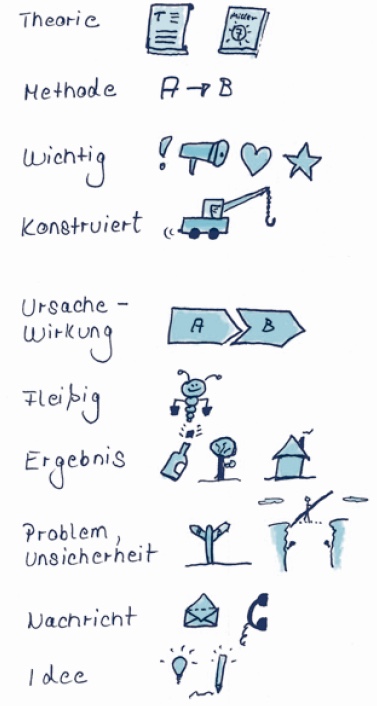 Theorie T Müller 7
Methode A → B
Wichtig !
Konstruiert
Ursache –
Wirkung A B
Fleißig
Ergebnis
Problem,
Unsicherheit
Nachricht
Idee